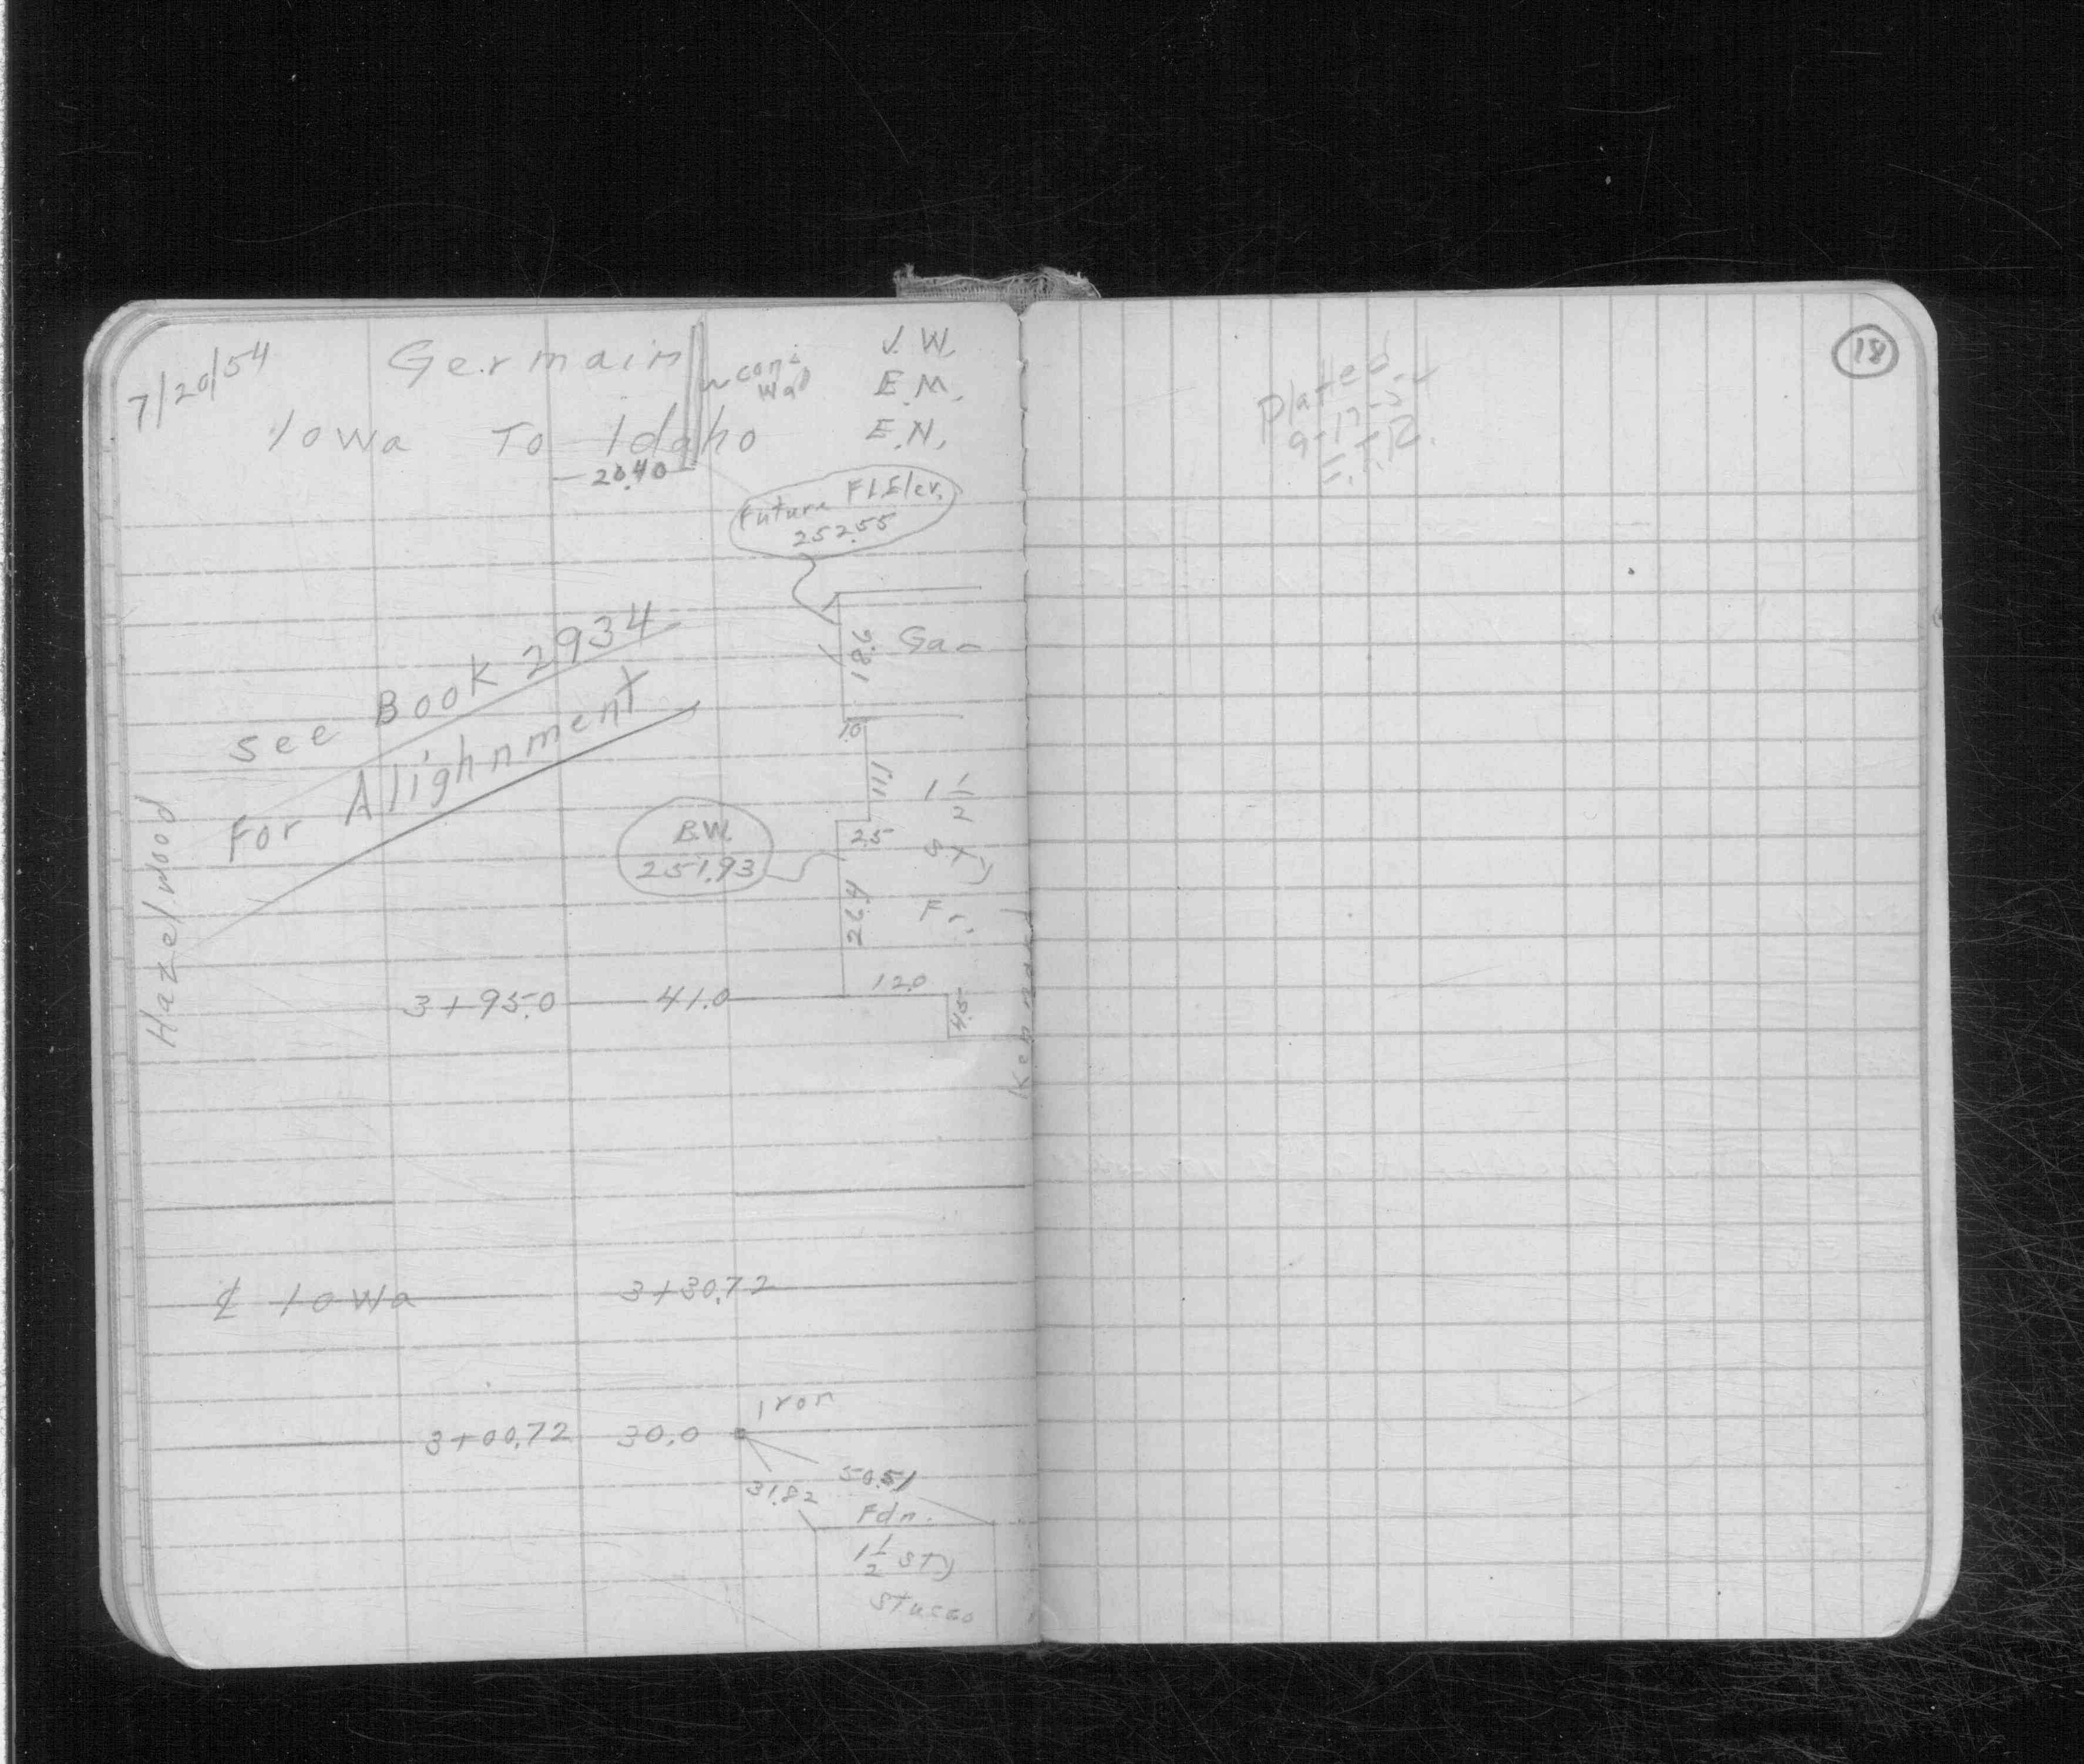 7/20/54
Germain
J. W.
E. M.
E. N.
Iowa To Idaho
20.40
Future Fl. Elev.
252.55
See Book 2934
For Alighnment
18.6
Ga-
1.0
11.1
1 1/2
Sty
Fr.
2.5
B.W.
251.93
26.4
Hazelwood
3+95.0 41.0
12.0
4.5
℄ Iowa 3+30.72
Iron
3+00.72 30.0
31.82 50.51
Fdn.
1 1/2 STy
Stucco
18
Platted
9-17-54